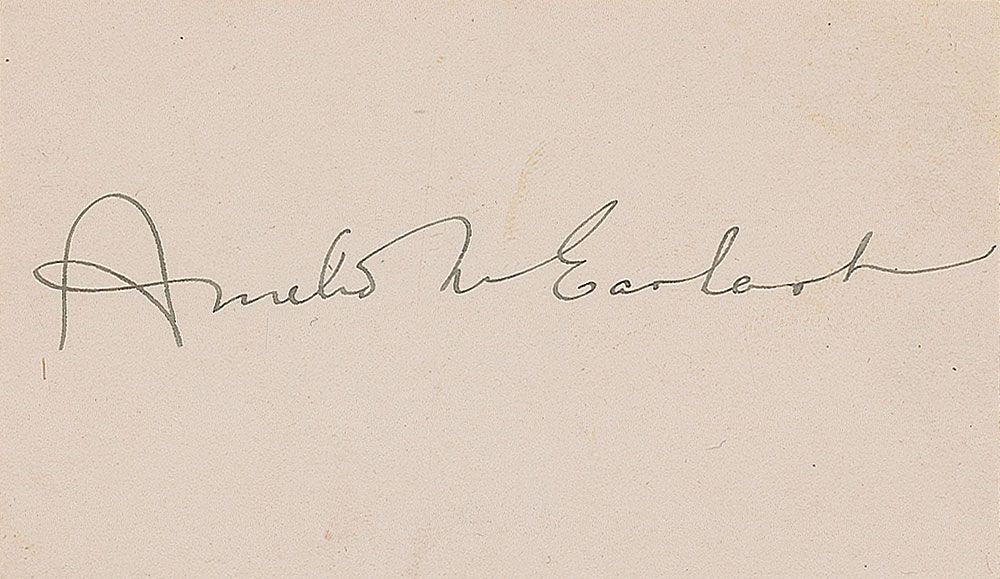 Amelia M Earhart